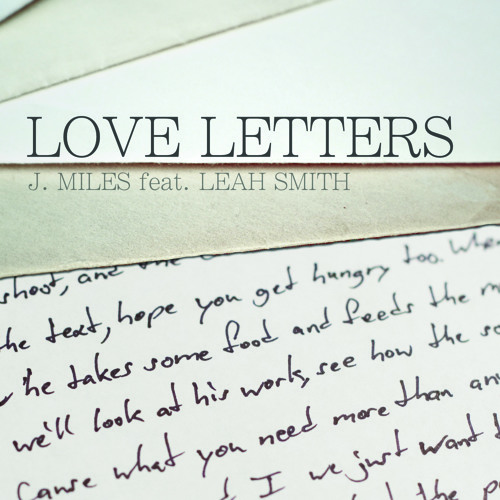 LOVE LETTERS
J. MILES feat. LEAH SMITH
shoot, and one
the text, hope you get hungry too. When
he takes some food and feeds the
we'll look at his work, see how the
Cause what you need more than
I we just want
the